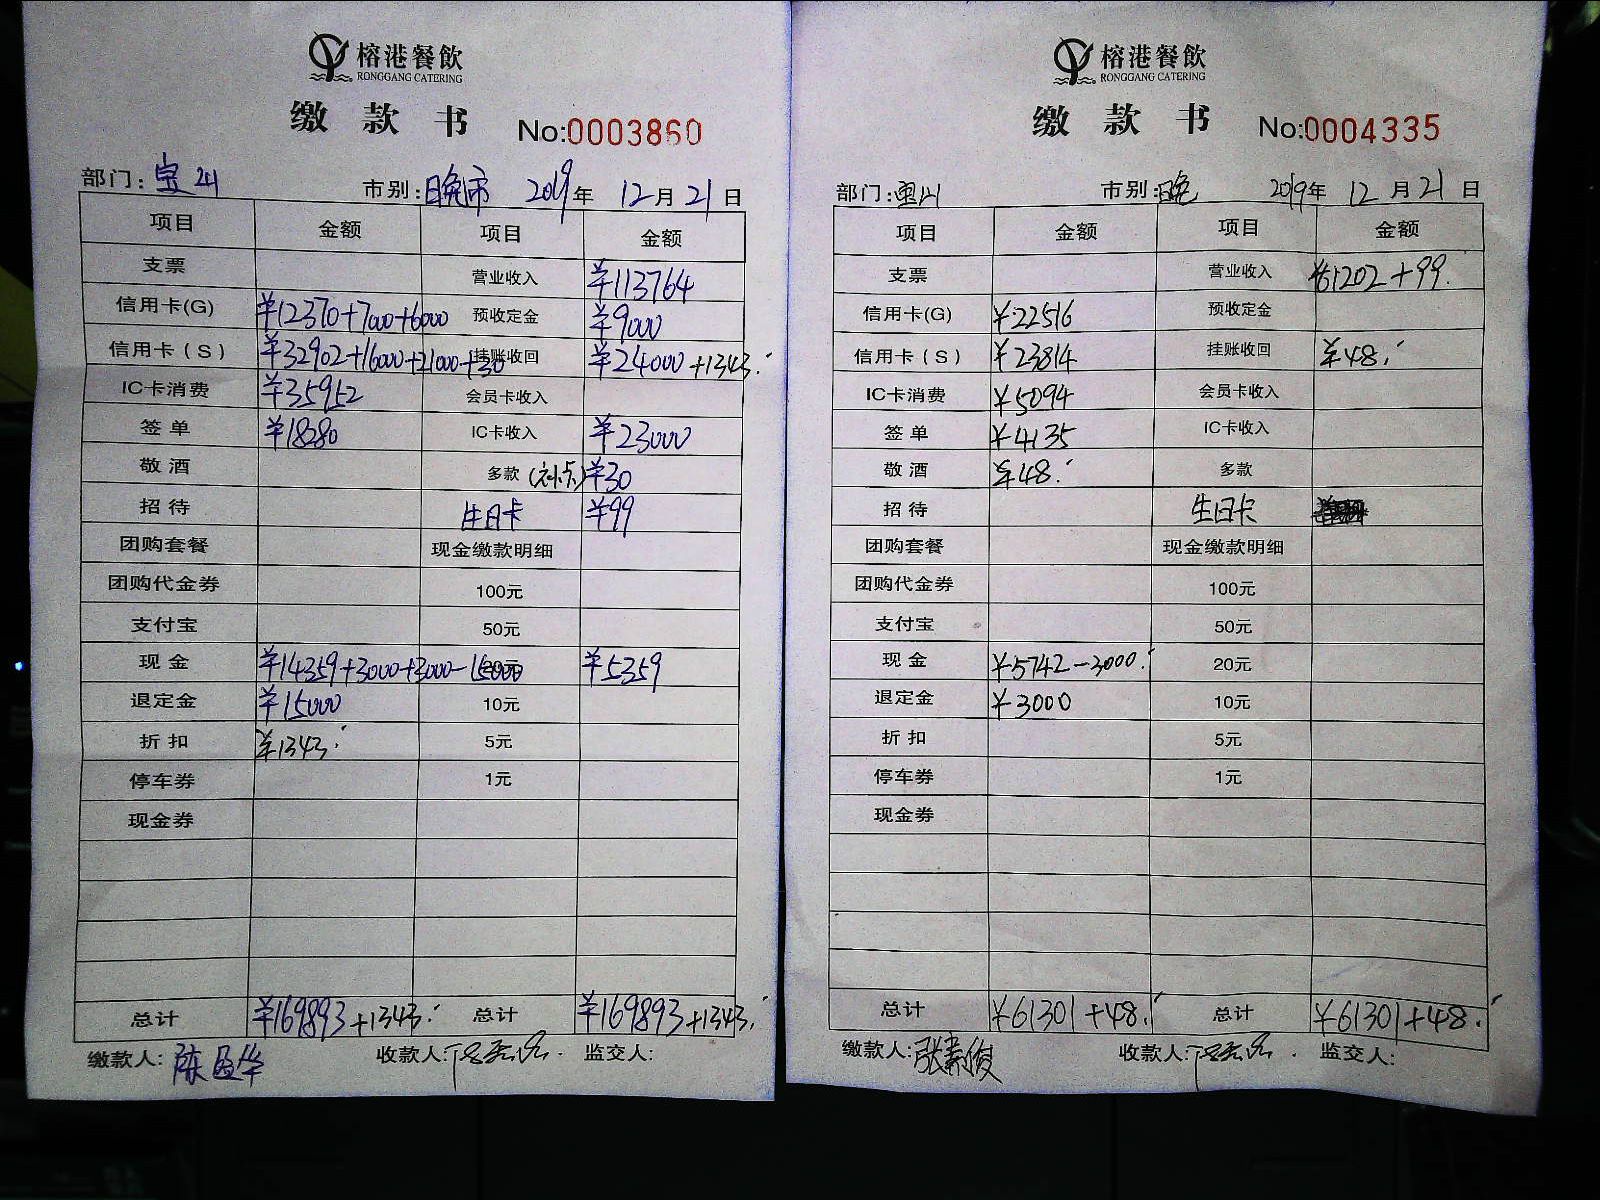 榕港餐飲
RONGGANG CATERING
缴款书 No:0003860
部门: 宝山 市别: 晚市 2019年 12月21日
项目 金额 项目 金额
支票 营业收入 ¥113764
信用卡(G) ¥12370+7000+6000 预收定金 ¥9000
信用卡(S) ¥32902+16000+21000+30 挂账收回 ¥24000+1343.
IC卡消费 ¥35952 会员卡收入
签单 ¥18280 IC卡收入 ¥23000
敬酒 多款 ¥30
招待 生日卡 ¥99
团购套餐 现金缴款明细
团购代金券 100元
支付宝 50元
现金 ¥14359+3000+3000-15000 20元 ¥5359
退定金 ¥15000 10元
折扣 ¥1343. 5元
停车券 1元
现金券
总计 ¥169893+1343. 总计 ¥169893+1343.
缴款人: 收款人: 监交人:
榕港餐飲
RONGGANG CATERING
缴款书 No:0004335
部门: 宝山 市别: 晚 2019年 12月21日
项目 金额 项目 金额
支票 营业收入 ¥61202+99.
信用卡(G) ¥22516 预收定金
信用卡(S) ¥23814 挂账收回 ¥48.
IC卡消费 ¥5094 会员卡收入
签单 ¥4135 IC卡收入
敬酒 ¥48. 多款
招待 生日卡
团购套餐 现金缴款明细
团购代金券 100元
支付宝 50元
现金 ¥5742-3000. 20元
退定金 ¥3000 10元
折扣 5元
停车券 1元
现金券
总计 ¥61301+48. 总计 ¥61301+48.
缴款人: 张素俊 收款人: 监交人: